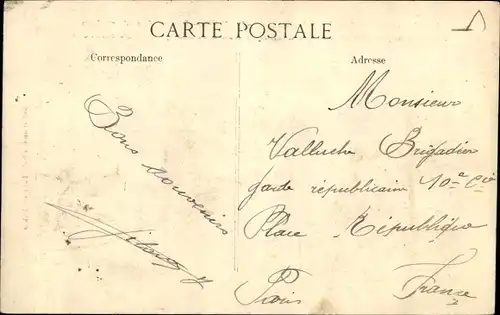 CARTE POSTALE
Correspondance
Adresse
Bons Souvenirs
Monsieur
Brigadier
Garde républicain 10e Cie
Place République
Paris France